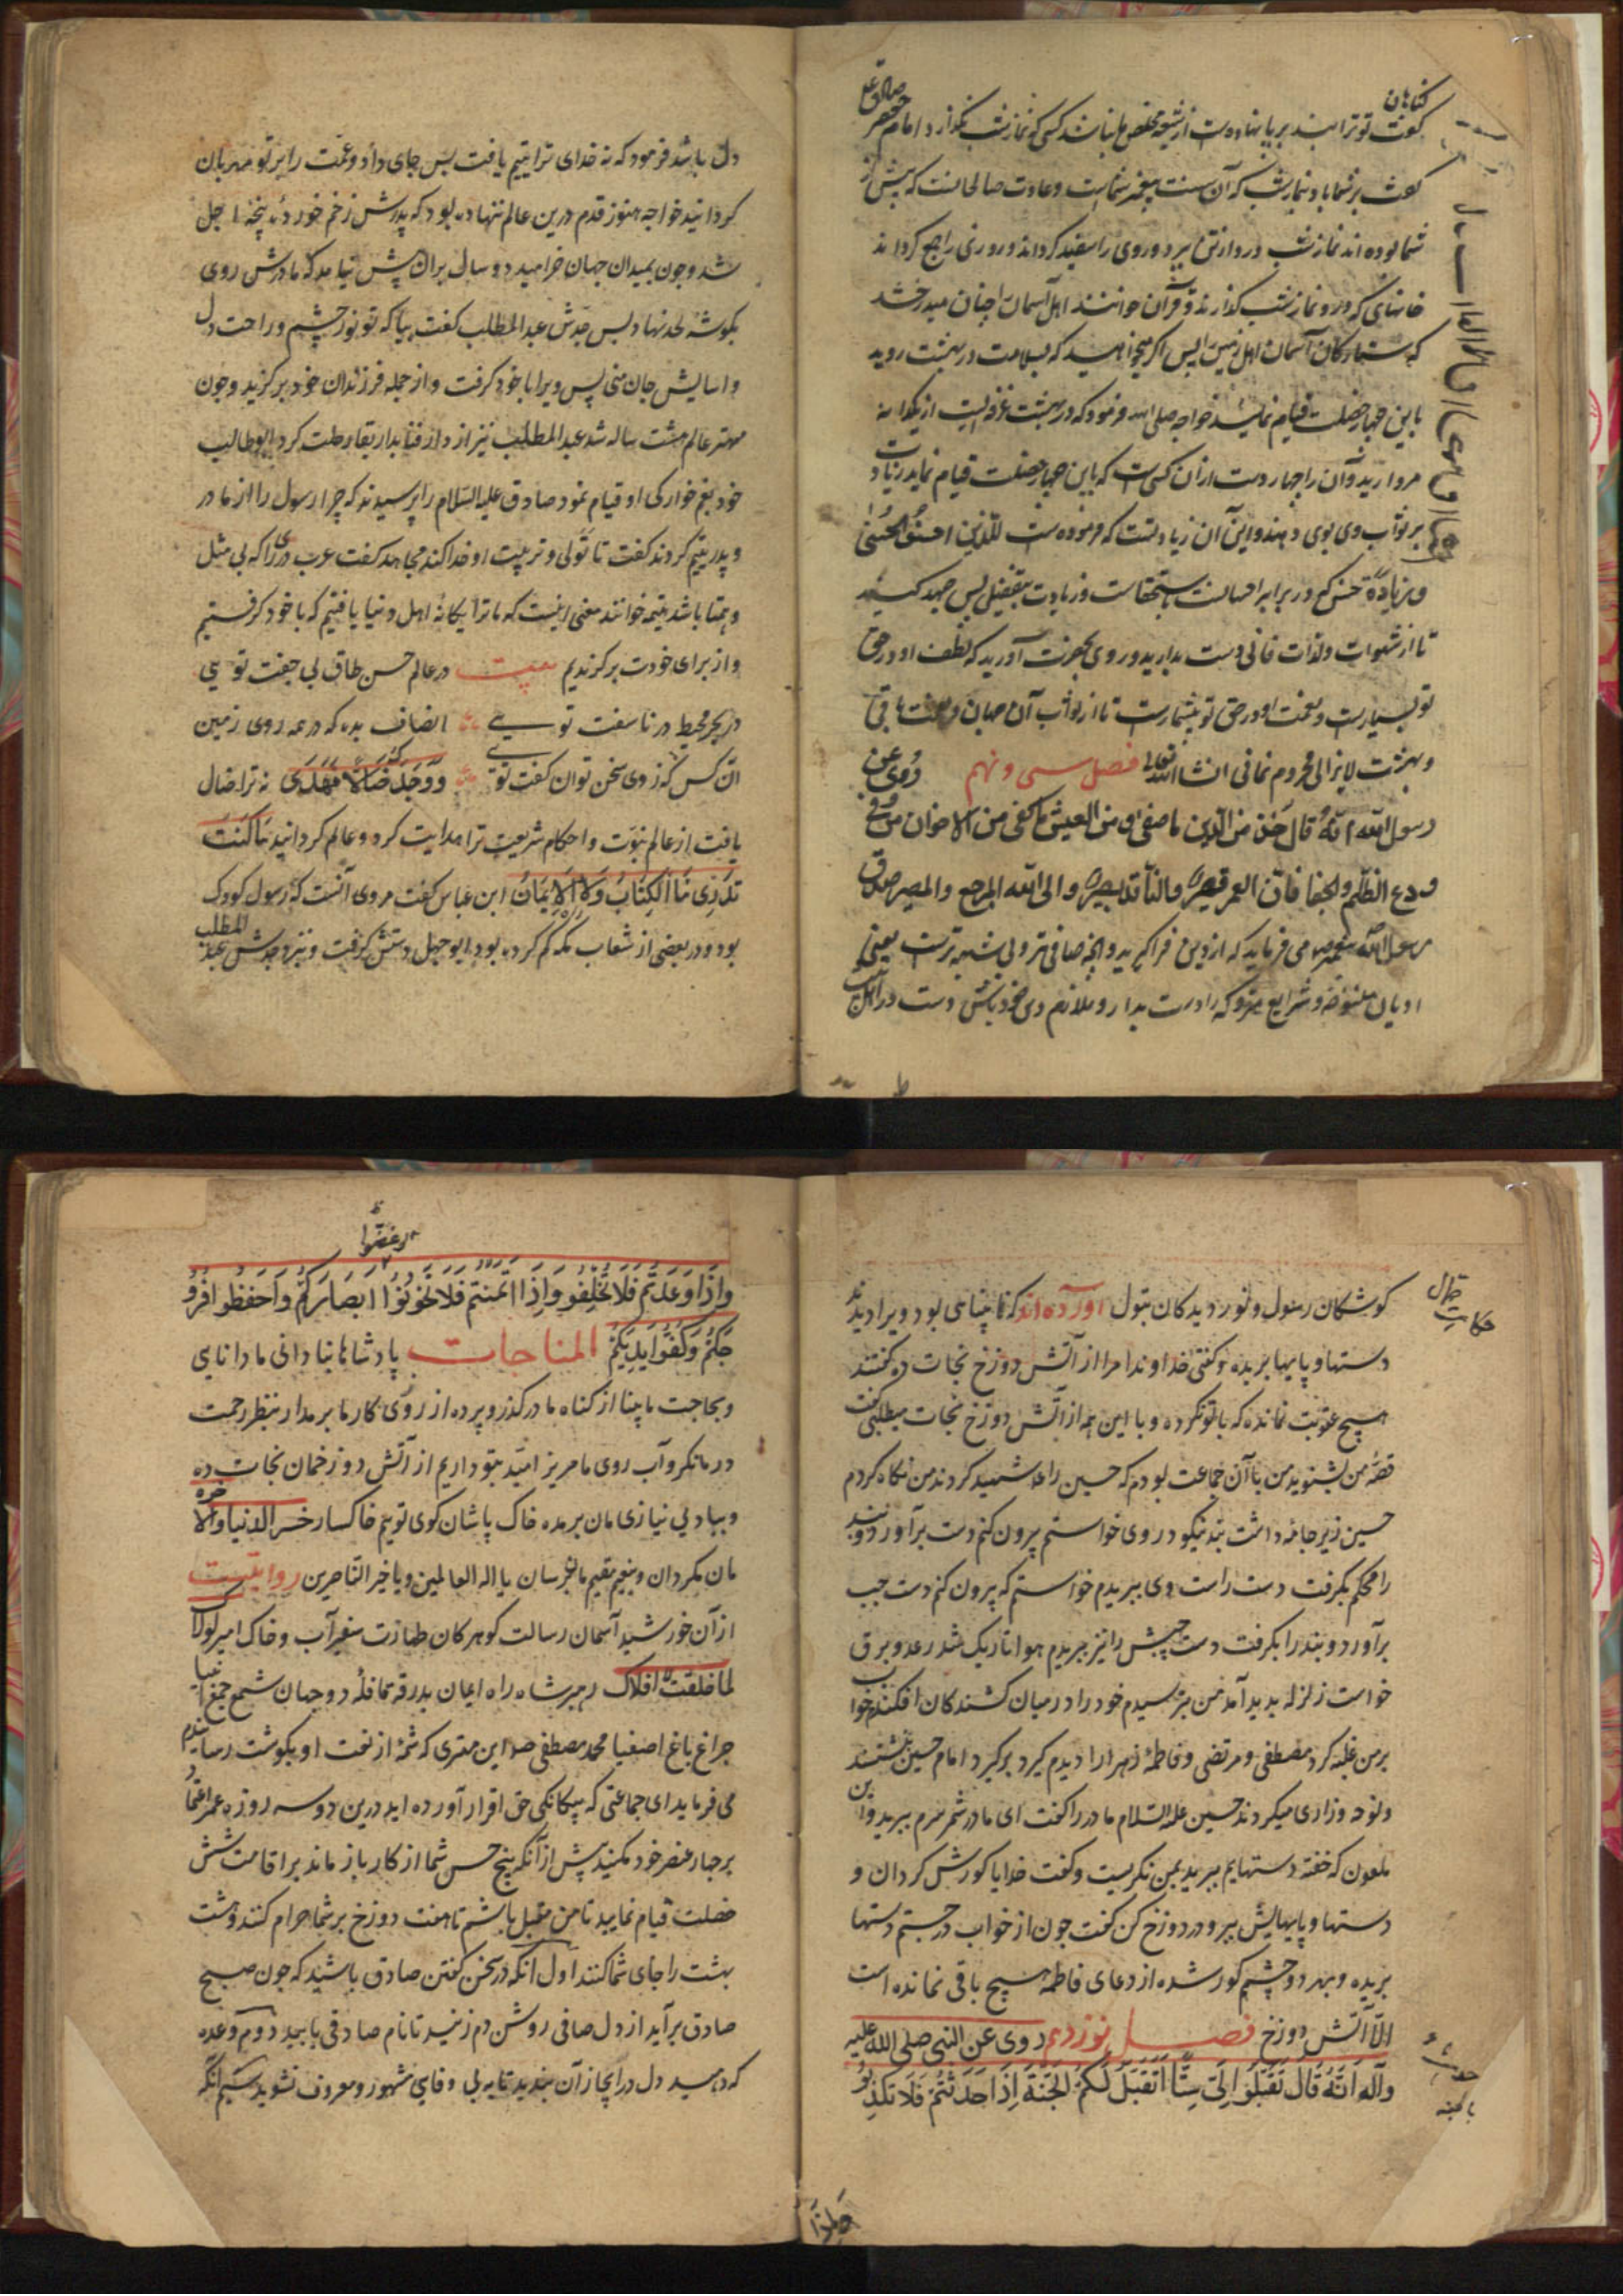 گناهان
گفت تو ترا بند بر پا نهاده است از شیعه مخلص ما نباشد کسی که نماز شب نگذارد امام جعفر صادق ع
گفت بر شما باد نماز شب که آن سنت پیغمبر شماست و عادت صالحانست که پیش از
شما بوده اند نماز شب درد از تن ببرد و روی را سفید گرداند و روزی را گرداند
خانهای که درو نماز شب گذارند و قرآن خوانند اهل آسمان را چنان میدرخشد
که ستارکان آسمان اهل زمین را پس اگر میخواهید که بسلامت در بهشت روید
باین چهار خصلت قیام نمائید خواجه صلی الله فرمود که در بهشت غرفه ایست از یکدانه
مروارید و آن را چهار دست از آن کسی است که باین چهار خصلت قیام نماید زیادت
بر ثواب وی بوی دهند و این آن زیادتست که فرموده است للذین احسنوا الحسنی
و زیادة حسن کم در برابر احسانست باستحقاقست و زیادت بتفضل پس جهد کنید
تا از شهوات و لذات فانی دست بدارید و روی بحضرت آورید که لطف او در حق
تو بسیارست و نعمت او در حق تو بیشمارست تا از ثواب آن جهان و نعمت باقی
و بهشت لایزالی محروم نمانی انشاالله تعالی فصل سی و نهم روی عن
رسول الله انه قال خذ من الدین ما صفی و من العیش ما کفی من الاخوان من وفی
ودع الظلم والجفا فان العمر قصیر والناقد بصیر والی الله المرجع والمصیر صدق
رسول الله پیغمبر ص می فرماید که از دین فرا گیرید وانچه صافی تر و بی شبه ترست یعنی
ادیان منسوخه و شرایع متروکه را دست بدار و ملازم دین خود باش دست در
دل باشد فرمود که نه خدای ترا یتیم یافت پس جای داد و عمت را بر تو مهربان
گردانید خواجه هنوز قدم درین عالم ننهاده بود که پدرش زخم خورده پنجهٔ اجل
شد و چون بمیدان جهان خرامید دو سال بران پیش نیامد که مادرش روی
بگوشه لحد نهاد پس جدش عبدالمطلب گفت بیا که تو نور چشم و راحت دل
و اسایش جان منی پس ویرا با خود گرفت و از جمله فرزندان خود برگزید و چون
مهتر عالم هشت ساله شد عبدالمطلب نیز از دار فنا بدار بقا رحلت کرد ابوطالب
خود بغم خوارکی او قیام نمود صادق علیه السلام را پرسیدند که چرا رسول را از مادر
و پدر یتیم کردند گفت تا تولی و تربیت او خدا کند مجاهد گفت عرب دری را که بی مثل
و همتا باشد یتیمه خوانند معنی اینست که ما ترا یگانه اهل دنیا یافتیم که با خود گرفتیم
و از برای خودت برگزیدیم بیت در عالم حسن طاق بی جفت تویی
در بحر محیط در ناسفت تویی انصاف بده که در همه روی زمین
آن کس که ازوی سخن توان گفت تویی ووجدک ضالا فهدی نه ترا ضال
یافت از عالم نبوت و احکام شریعت ترا هدایت کرد و عالم گردانید ما کنت
تدری ما الکتاب ولا الایمان ابن عباس گفت مروی آنست که رسول کودک
بود و در بعضی از شعاب مکه گم گرده بود ابوجهل دستش گرفت و نزد جدش عبدالمطلب
حکایت جمال
گوشگان رسول و نور دیدگان بتول آورده اند که نابینایی بود ویرا دیدند
دستها و پایها بریده و گفتی خداوندا مرا از آتش دوزخ نجات ده گفتند
هیچ عقوبت نمانده که با تو نکرده و با این همه از آتش دوزخ نجات میطلبی گفت
قصه من بشنوید من با آن جماعت بودم که حسین را شهید کردند من نگاه کردم
حسین زیر جامه داشت بند نیکو در وی خواستم بیرون کنم دست برآورد و بند
را محکم بگرفت دست راست وی ببریدم خواستم که بیرون کنم دست چپ
برآورد و بند را بگرفت دست چپش را نیز ببریدم هوا تاریک شد رعد و برق
خواست زلزله پدید آمد من بترسیدم خود را در میان کشتگان افکندم خواب
بر من غلبه کرد مصطفی و مرتضی و فاطمهٔ زهرا را دیدم گرد برگرد امام حسین نشستند
و نوحه و زاری میکردند حسین علیه السلام مادر را گفت ای مادر شمر سرم ببرید و این
ملعون که خفته دستهایم ببرید بمن نگریست و گفت خدایا کورش گردان و
دستها و پایهایش ببر و در دوزخ کن گفت چون از خواب درجستم دستها
بریده و بهر دو چشم کور شده از دعای فاطمه هیچ باقی نمانده است
الا آتش دوزخ فصل نوزدهم روی عن النبی صلی الله علیه
وآله انه قال تقبلوا الی ستا اتقبل لکم الجنة اذا حدثتم فلا تکذبوا
وغضوا
واذا وعدتم فلا تخلفوا واذا ائتمنتم فلا تخونوا ابصارکم واحفظوا افرو
جکم وکفوا ایدیکم المناجات پادشاها بنادانی ما دانای
و بحاجت ما بینا از گناه ما درگذر و پرده از روی کار ما برمدار بنظر رحمت
در ما نگر و آب روی ما مریز امید بتو داریم از آتش دوزخمان نجات ده
و بباد بی نیازی مان برمده خاک پاشان کوی تویم خاکسار خسر الدنیا والاخره
مان مگردان و بنعیم مقیم مان برسان یا اله العالمین و یا خیر الناصرین روایتست
از آن خورشید آسمان رسالت گوهر کان طهارت سفیر آب و خاک امیر لولاک
لما خلقت افلاک رهبر شاه راه ایمان بدرقه قافلهٔ دو جهان شمع جمع انبیا
چراغ باغ اصفیا محمد مصطفی ص این مقری که شمهٔ از نعت او بگوشت رسانیدم
می فرماید ای جماعتی که بیگانگی حق اقرار آورده اید درین دو سه روزه عمر اعتماد
بر چهار عنصر خود مکنید پیش از آنکه پنج حس شما از کار باز ماند بر اقامت شش
خصلت قیام نمایید تا من متقبل باشم تا هفت دوزخ بر شما حرام کنند و هشت
بهشت را جای شما کنند اول آنکه در سخن گفتن صادق باشید که چون صبح
صادق برآید از دل صافی روشن دم زنید تا نام صادقی یابید دوم وعده
که دهید دل در انجاز آن بندید تا به بی وفایی مشهور و معروف نشوید سیم آنکه